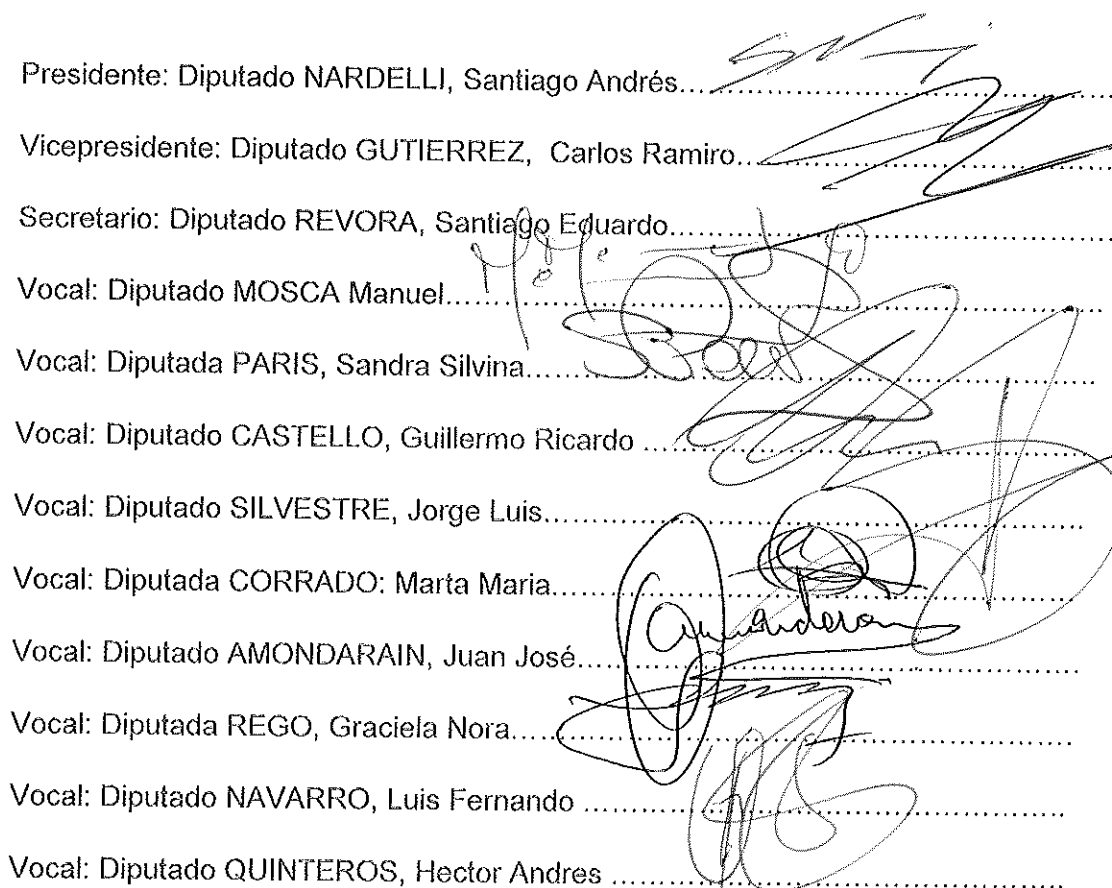 Presidente: Diputado NARDELLI, Santiago Andrés...
Vicepresidente: Diputado GUTIERREZ, Carlos Ramiro...
Secretario: Diputado REVORA, Santiago Eduardo...
Vocal: Diputado MOSCA Manuel...
Vocal: Diputada PARIS, Sandra Silvina...
Vocal: Diputado CASTELLO, Guillermo Ricardo ...
Vocal: Diputado SILVESTRE, Jorge Luis...
Vocal: Diputada CORRADO: Marta Maria...
Vocal: Diputado AMONDARAIN, Juan José...
Vocal: Diputada REGO, Graciela Nora...
Vocal: Diputado NAVARRO, Luis Fernando ...
Vocal: Diputado QUINTEROS, Hector Andres ...